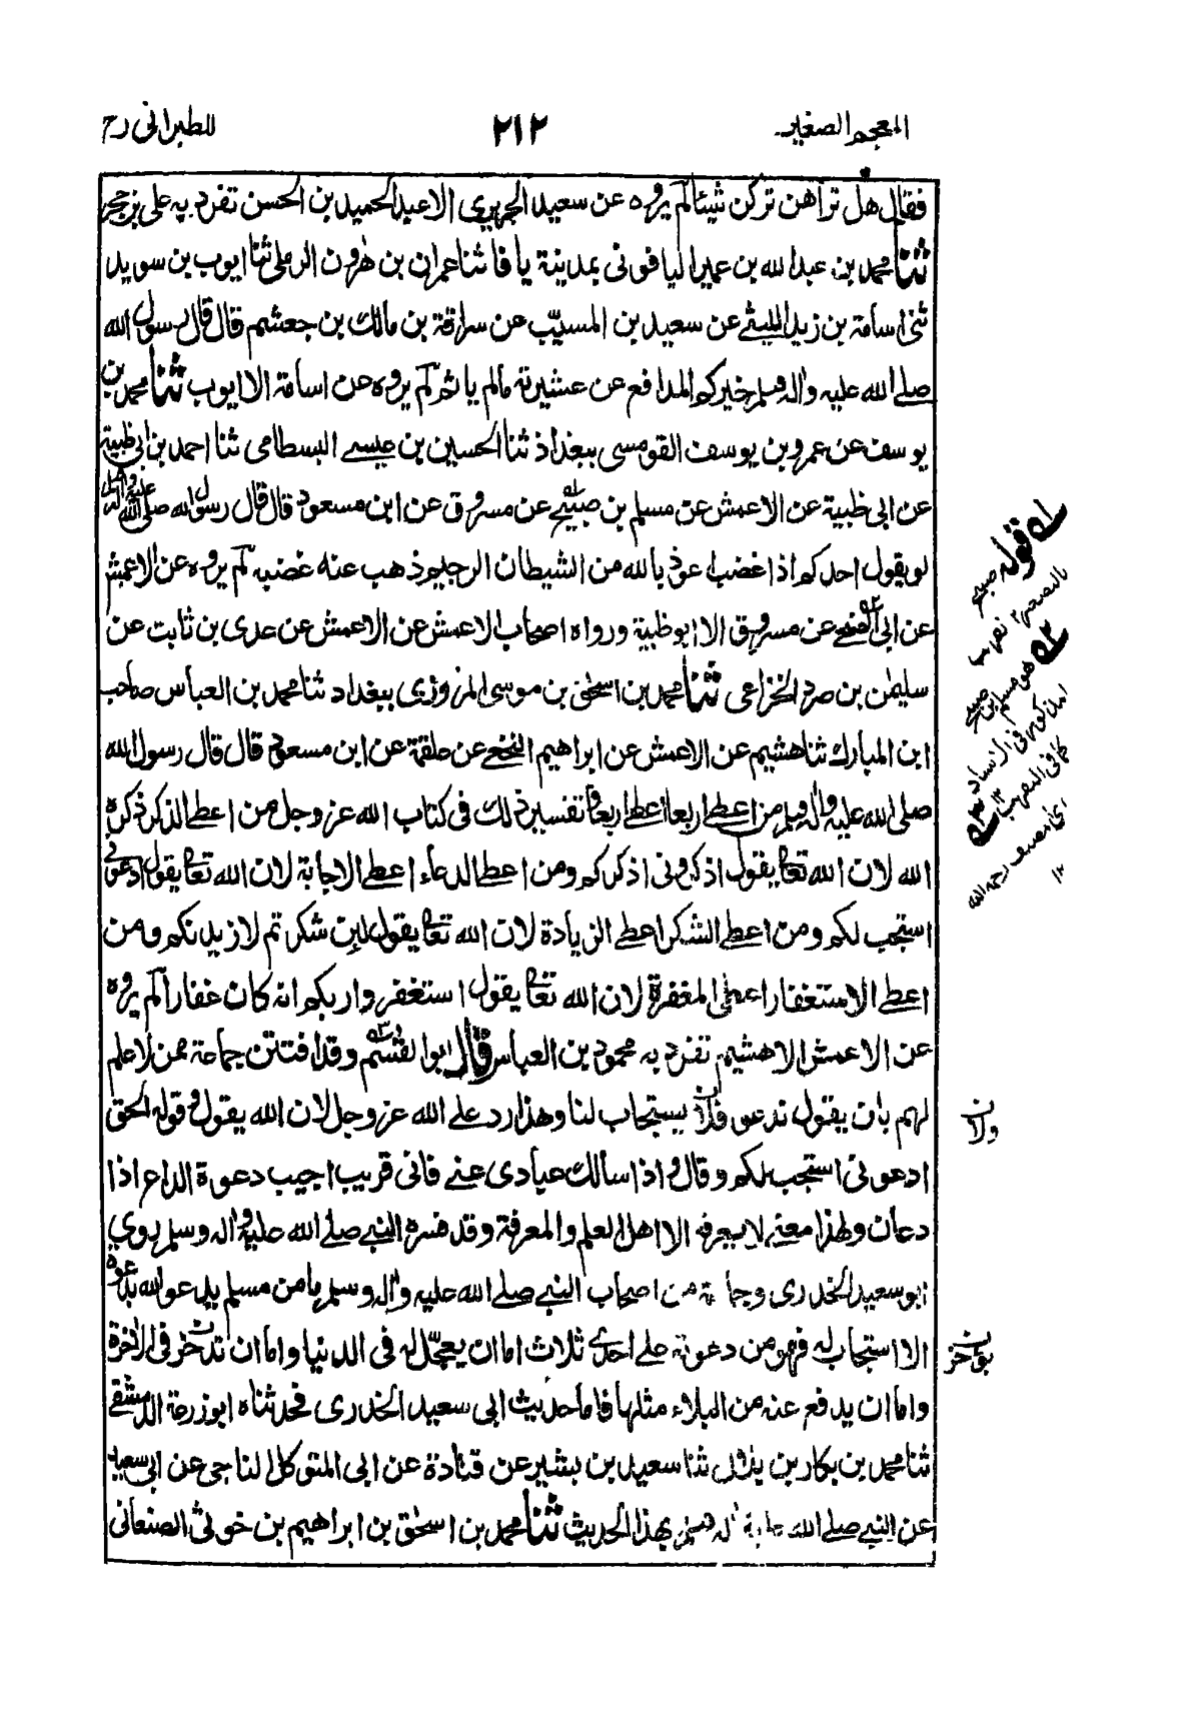 المعجم الصغير
٢١٢
للطبرانی رح
فقال هل تراهن تركن شيئا لم يروه عن سعيد الجريری الا عبد الحميد بن الحسن تفرد به علی بن حجر
ثنا محمد بن عبد الله بن عمير اليافونی بمدينة يافا ثنا عمران بن هٰرون الرملی ثنا ايوب بن سويد
ثنی اسامة بن زيد الليثے عن سعيد بن المسيّب عن سراقة بن مالك بن جعشم قال قال رسول الله
صلے الله عليه واٰله وسلم خيركم المدافع عن عشيرته مالم ياثم لم يروه عن اسامة الا ايوب ثنا محمد بن
يوسف عن عمرو بن يوسف القومسی ببغداذ ثنا الحسين بن عيسے البسطامی ثنا احمد بن ابی ظبية
عن ابی ظبية عن الاعمش عن مسلم بن صبيح عن مسروق عن ابن مسعود قال قال رسول الله صلی الله عليه واٰله وسلم
لو يقول احدكم اذا غضب اعوذ بالله من الشيطان الرجيم ذهب عنه غضبه لم يروه عن الاعمش
عن ابی الضحے عن مسروق الا ابو ظبية ورواه اصحاب الاعمش عن الاعمش عن عدی بن ثابت عن
سليمٰن بن صرد الخزاعی ثنا محمد بن اسحٰق بن موسی المروزی ببغداد ثنا محمد بن العباس صاحب
ابن المبارك ثنا هشيم عن الاعمش عن ابراهيم النخعے عن علقمة عن ابن مسعود قال قال رسول الله
صلی الله عليه واٰله وسلم من اعطے اربعا اعطے اربعا وتفسير ذلك فی كتاب الله عز وجل من اعطے الذكر ذكره
الله لان الله تعالی يقول اذكرونی اذكركم ومن اعطے الدعاء اعطے الاجابة لان الله تعالی يقول ادعونی
استجب لكم ومن اعطے الشكر اعطے الزيادة لان الله تعالی يقول لئن شكرتم لازيدنكم ومن
اعطے الاستغفار اعطی المغفرة لان الله تعالی يقول استغفروا ربكم انه كان غفارا لم يروه
عن الاعمش الا هشيم تفرد به محمود بن العباس قال ابو القٰسم وقد افتتن جماعة ممن لا علم
لهم بان يقول ندعو فلا يستجاب لنا وهذا رد علے الله عز وجل لان الله يقول وقوله الحق
ادعونی استجب لكم وقال واذا سالك عبادی عنے فانی قريب اجيب دعوة الداع اذا
دعان ولهٰذا معنے لا يعرفه الا اهل العلم والمعرفة وقد فسره النبے صلے الله عليه واٰله وسلم روی
ابو سعيد الخدری وجماعة من اصحاب النبے صلے الله عليه واٰله وسلم ما من مسلم يدعو الله بدعوة
الا استجاب له فهو من دعوته علے احدے ثلاث اما ان يعجّل له فی الدنيا واما ان تدخر فی الاٰخرة
واما ان يدفع عنه من البلاء مثلها فاما حديث ابی سعيد الخدری فحدثناه ابو زرعة الدمشقے
ثنا محمد بن بكار بن بلال ثنا سعيد بن بشير عن قتادة عن ابی المتوكل الناجی عن ابی سعيد
عن النبے صلے الله عليه واٰله وسلم بهذا الحديث ثنا محمد بن اسحٰق بن ابراهيم بن خوثی الصنعانی
له قوله صبيح
بالتصغير ١٢ تقريب
٢ه هو مسلم ابن صبيح
كما فی التقريب ١٢
المصنف رحمه الله
١٢
ولا ن
يؤخر ن